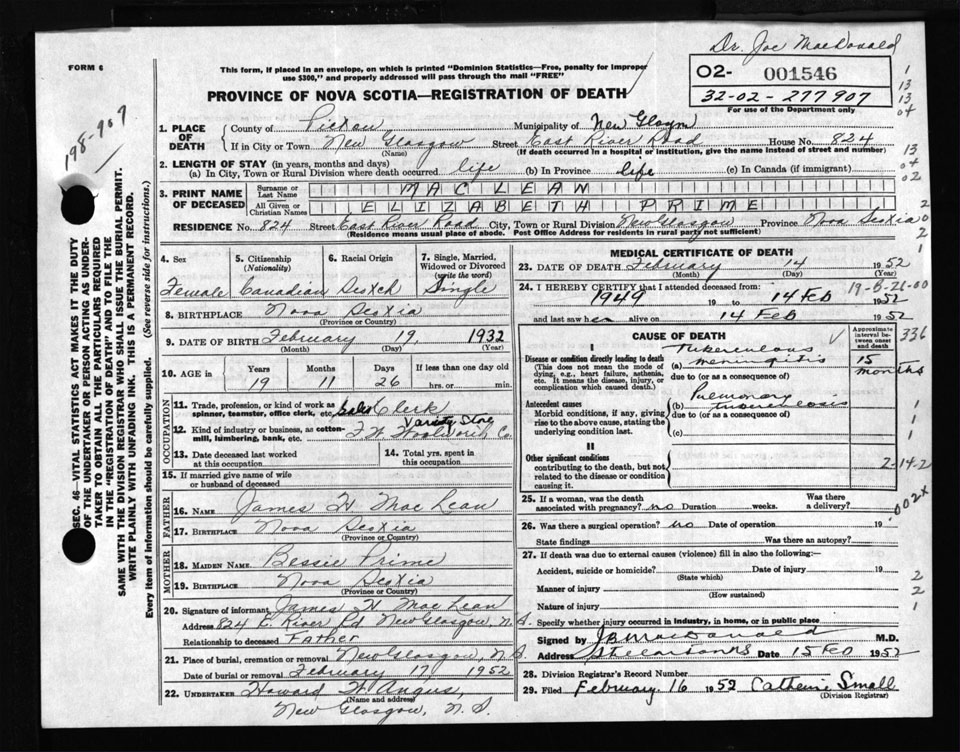 Dr. Joe MacDonald
FORM 6
This form, if placed in an envelope, on which is printed "Dominion Statistics—Free, penalty for improper
use $300," and properly addressed will pass through the mail "FREE"
02- 001546
32-02-277907
For use of the Department only
PROVINCE OF NOVA SCOTIA—REGISTRATION OF DEATH
198-907
1. PLACE OF DEATH
County of Pictou Municipality of New Glasgow
If in City or Town New Glasgow Street East River Road House No. 824
(Name) (If death occurred in a hospital or institution, give the name instead of street and number)
2. LENGTH OF STAY (in years, months and days)
(a) In City, Town or Rural Division where death occurred life (b) In Province life (c) In Canada (if immigrant)
3. PRINT NAME OF DECEASED
Surname or Last Name MAC LEAN
All Given or Christian Names ELIZABETH PRIME
RESIDENCE No. 824 Street East River Road City, Town or Rural Division New Glasgow Province Nova Scotia
(Residence means usual place of abode. Post Office Address for residents in rural party not sufficient)
SEC. 46—VITAL STATISTICS ACT MAKES IT THE DUTY
OF THE UNDERTAKER OR PERSON ACTING AS UNDER-
TAKER TO OBTAIN ALL THE PARTICULARS REQUIRED
IN THE "REGISTRATION OF DEATH" AND TO FILE THE
SAME WITH THE DIVISION REGISTRAR WHO SHALL ISSUE THE BURIAL PERMIT.
WRITE PLAINLY WITH UNFADING INK. THIS IS A PERMANENT RECORD.
Every item of information should be carefully supplied. (See reverse side for instructions.)
4. Sex Female
5. Citizenship (Nationality) Canadian
6. Racial Origin Scotch
7. Single, Married, Widowed or Divorced (write the word) Single
8. BIRTHPLACE Nova Scotia
(Province or Country)
9. DATE OF BIRTH February 19, 1932
(Month) (Day) (Year)
10. AGE in Years 19 Months 11 Days 26 If less than one day old hrs. or min.
OCCUPATION
11. Trade, profession, or kind of work as spinner, teamster, office clerk, etc. Sales Clerk
12. Kind of industry or business, as cotton-mill, lumbering, bank, etc. Variety Store F W Woolworth Co
13. Date deceased last worked at this occupation
14. Total yrs. spent in this occupation
15. If married give name of wife or husband of deceased
FATHER
16. Name James H Mac Lean
17. Birthplace Nova Scotia
(Province or Country)
MOTHER
18. Maiden Name Bessie Prime
19. Birthplace Nova Scotia
(Province or Country)
20. Signature of informant James H Mac Lean
Address 824 E. River Rd New Glasgow, N.S.
Relationship to deceased Father
21. Place of burial, cremation or removal New Glasgow, N.S.
Date of burial or removal February 17, 1952
22. Undertaker Howard H. Angus,
(Name and address)
New Glasgow, N.S.
MEDICAL CERTIFICATE OF DEATH
23. DATE OF DEATH February 14 1952
(Month) (Day) (Year)
24. I HEREBY CERTIFY that I attended deceased from: 19-8-26-00
1949 19 to 14 Feb 1952
and last saw her alive on 14 Feb 1952
CAUSE OF DEATH
Approximate interval between onset and death
336
I
Disease or condition directly leading to death
(This does not mean the mode of dying, e.g., heart failure, asthenia, etc. It means the disease, injury, or complication which caused death.)
(a) Tuberculous meningitis 15 months
due to (or as a consequence of)
Antecedent causes
Morbid conditions, if any, giving rise to the above cause, stating the underlying condition last.
(b) Pulmonary tuberculosis
due to (or as a consequence of)
(c)
II
Other significant conditions
contributing to the death, but not related to the disease or condition causing it.
2-14-2
25. If a woman, was the death associated with pregnancy? no Duration weeks. Was there a delivery?
002x
26. Was there a surgical operation? no Date of operation 19
State findings Was there an autopsy?
27. If death was due to external causes (violence) fill in also the following:—
Accident, suicide or homicide? Date of injury 19
(State which)
Manner of injury
(How sustained)
Nature of injury
Specify whether injury occurred in industry, in home, or in public place
Signed by J B MacDonald M.D.
Address Stellarton NS Date 15 Feb 1952
28. Division Registrar's Record Number
29. Filed February 16 1952 Catherine Small
(Division Registrar)